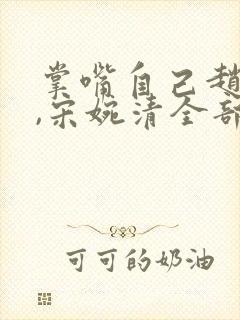 掌嘴自己赵
,宋婉清全部
可可的奶油